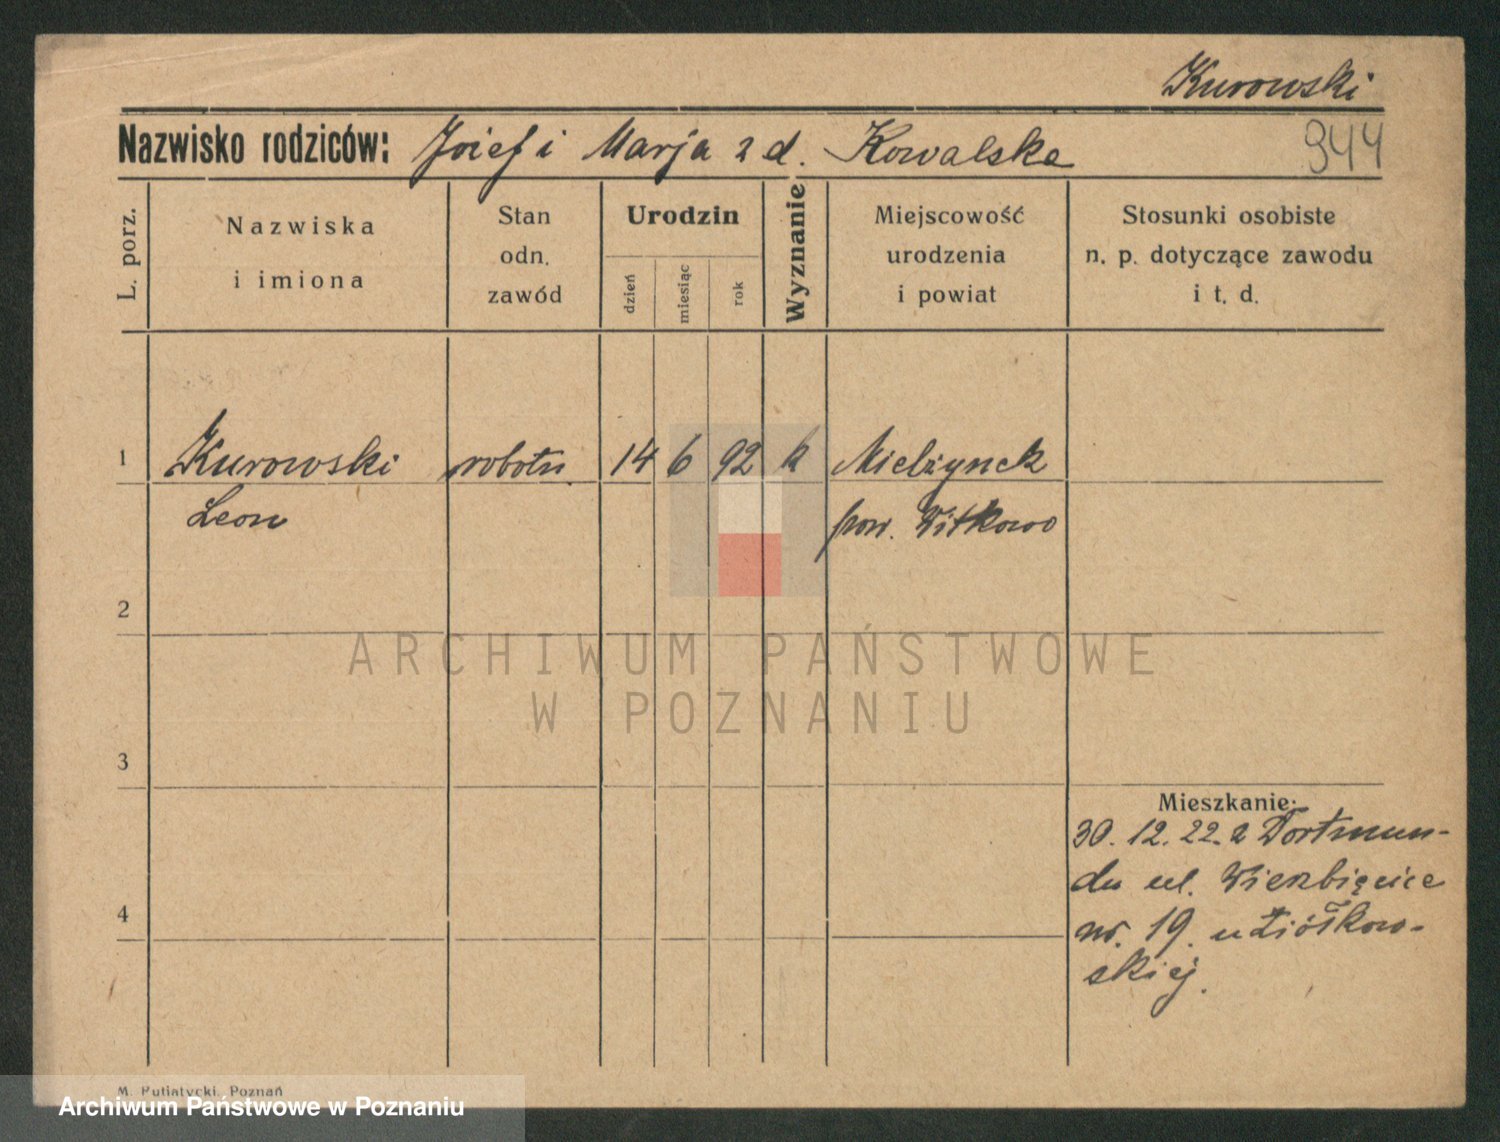 Kurowski
Nazwisko rodziców: Józef i Marja z d. Kowalska
944
L. porz.
Nazwiska
i imiona
Stan
odn.
zawód
Urodzin
dzień
miesiąc
rok
Wyznanie
Miejscowość
urodzenia
i powiat
Stosunki osobiste
n. p. dotyczące zawodu
i t. d.
1 Kurowski robotn. 14 6 92 k Mielżynek
Leon pow. Witkowo
2
ARCHIWUM PAŃSTWOWE
W POZNANIU
3
Mieszkanie:
30. 12. 22. z Dortmun-
du ul. Wierzbięcice
4
nr. 19. u Ziółkow-
skiej.
M. Putiatycki, Poznań
Archiwum Państwowe w Poznaniu